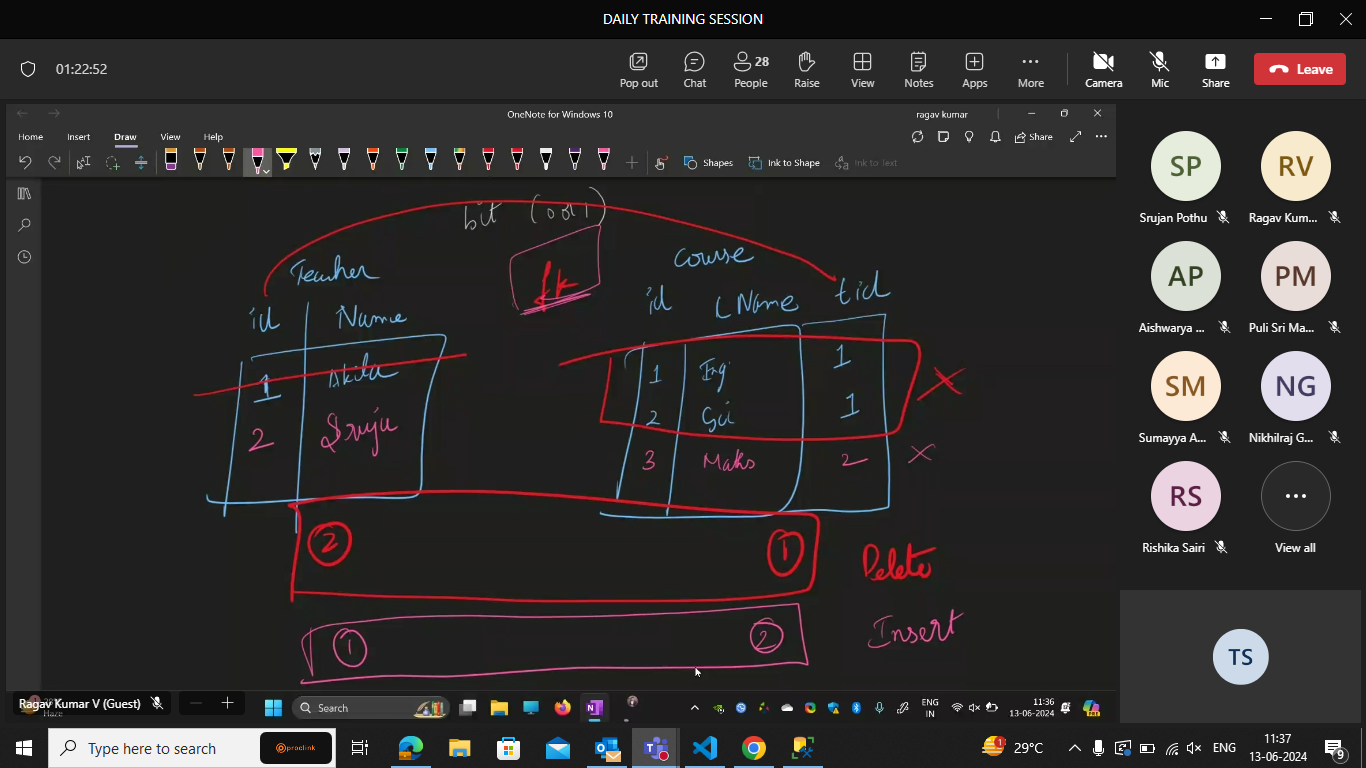 DAILY TRAINING SESSION
01:22:52
Pop out
Chat
28
People
Raise
View
Notes
Apps
More
Camera
Mic
Share
Leave
OneNote for Windows 10
ragav kumar
Home
Insert
Draw
View
Help
Share
Shapes
Ink to Shape
Ink to Text
bit (0 or 1)
Teacher
fk
Course
id
Name
id
CName
tid
1
Akila
1
Eng
1
2
Sruju
2
Sci
1
3
Maths
2
2
1
Delete
1
2
Insert
SP
Srujan Pothu
RV
Ragav Kum...
AP
Aishwarya ...
PM
Puli Sri Ma...
SM
Sumayya A...
NG
Nikhilraj G...
RS
Rishika Sairi
View all
TS
Ragav Kumar V (Guest)
Haze
Search
ENG
IN
11:36
13-06-2024
Type here to search
proclink
1
29°C
ENG
11:37
13-06-2024
9